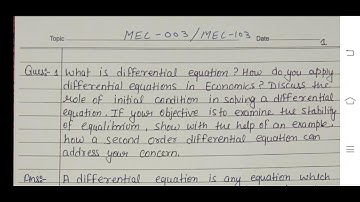 Topic MEC-003/MEC-103 Date
1
Ques-1 What is differential equation? How do you apply
differential equations in Economics? Discuss the
role of initial condition in solving a differential
equation. If your objective is to examine the stability
of equilibrium, show with the help of an example,
how a second order differential equation can
address your concern.
Ans- A differential equation is any equation which